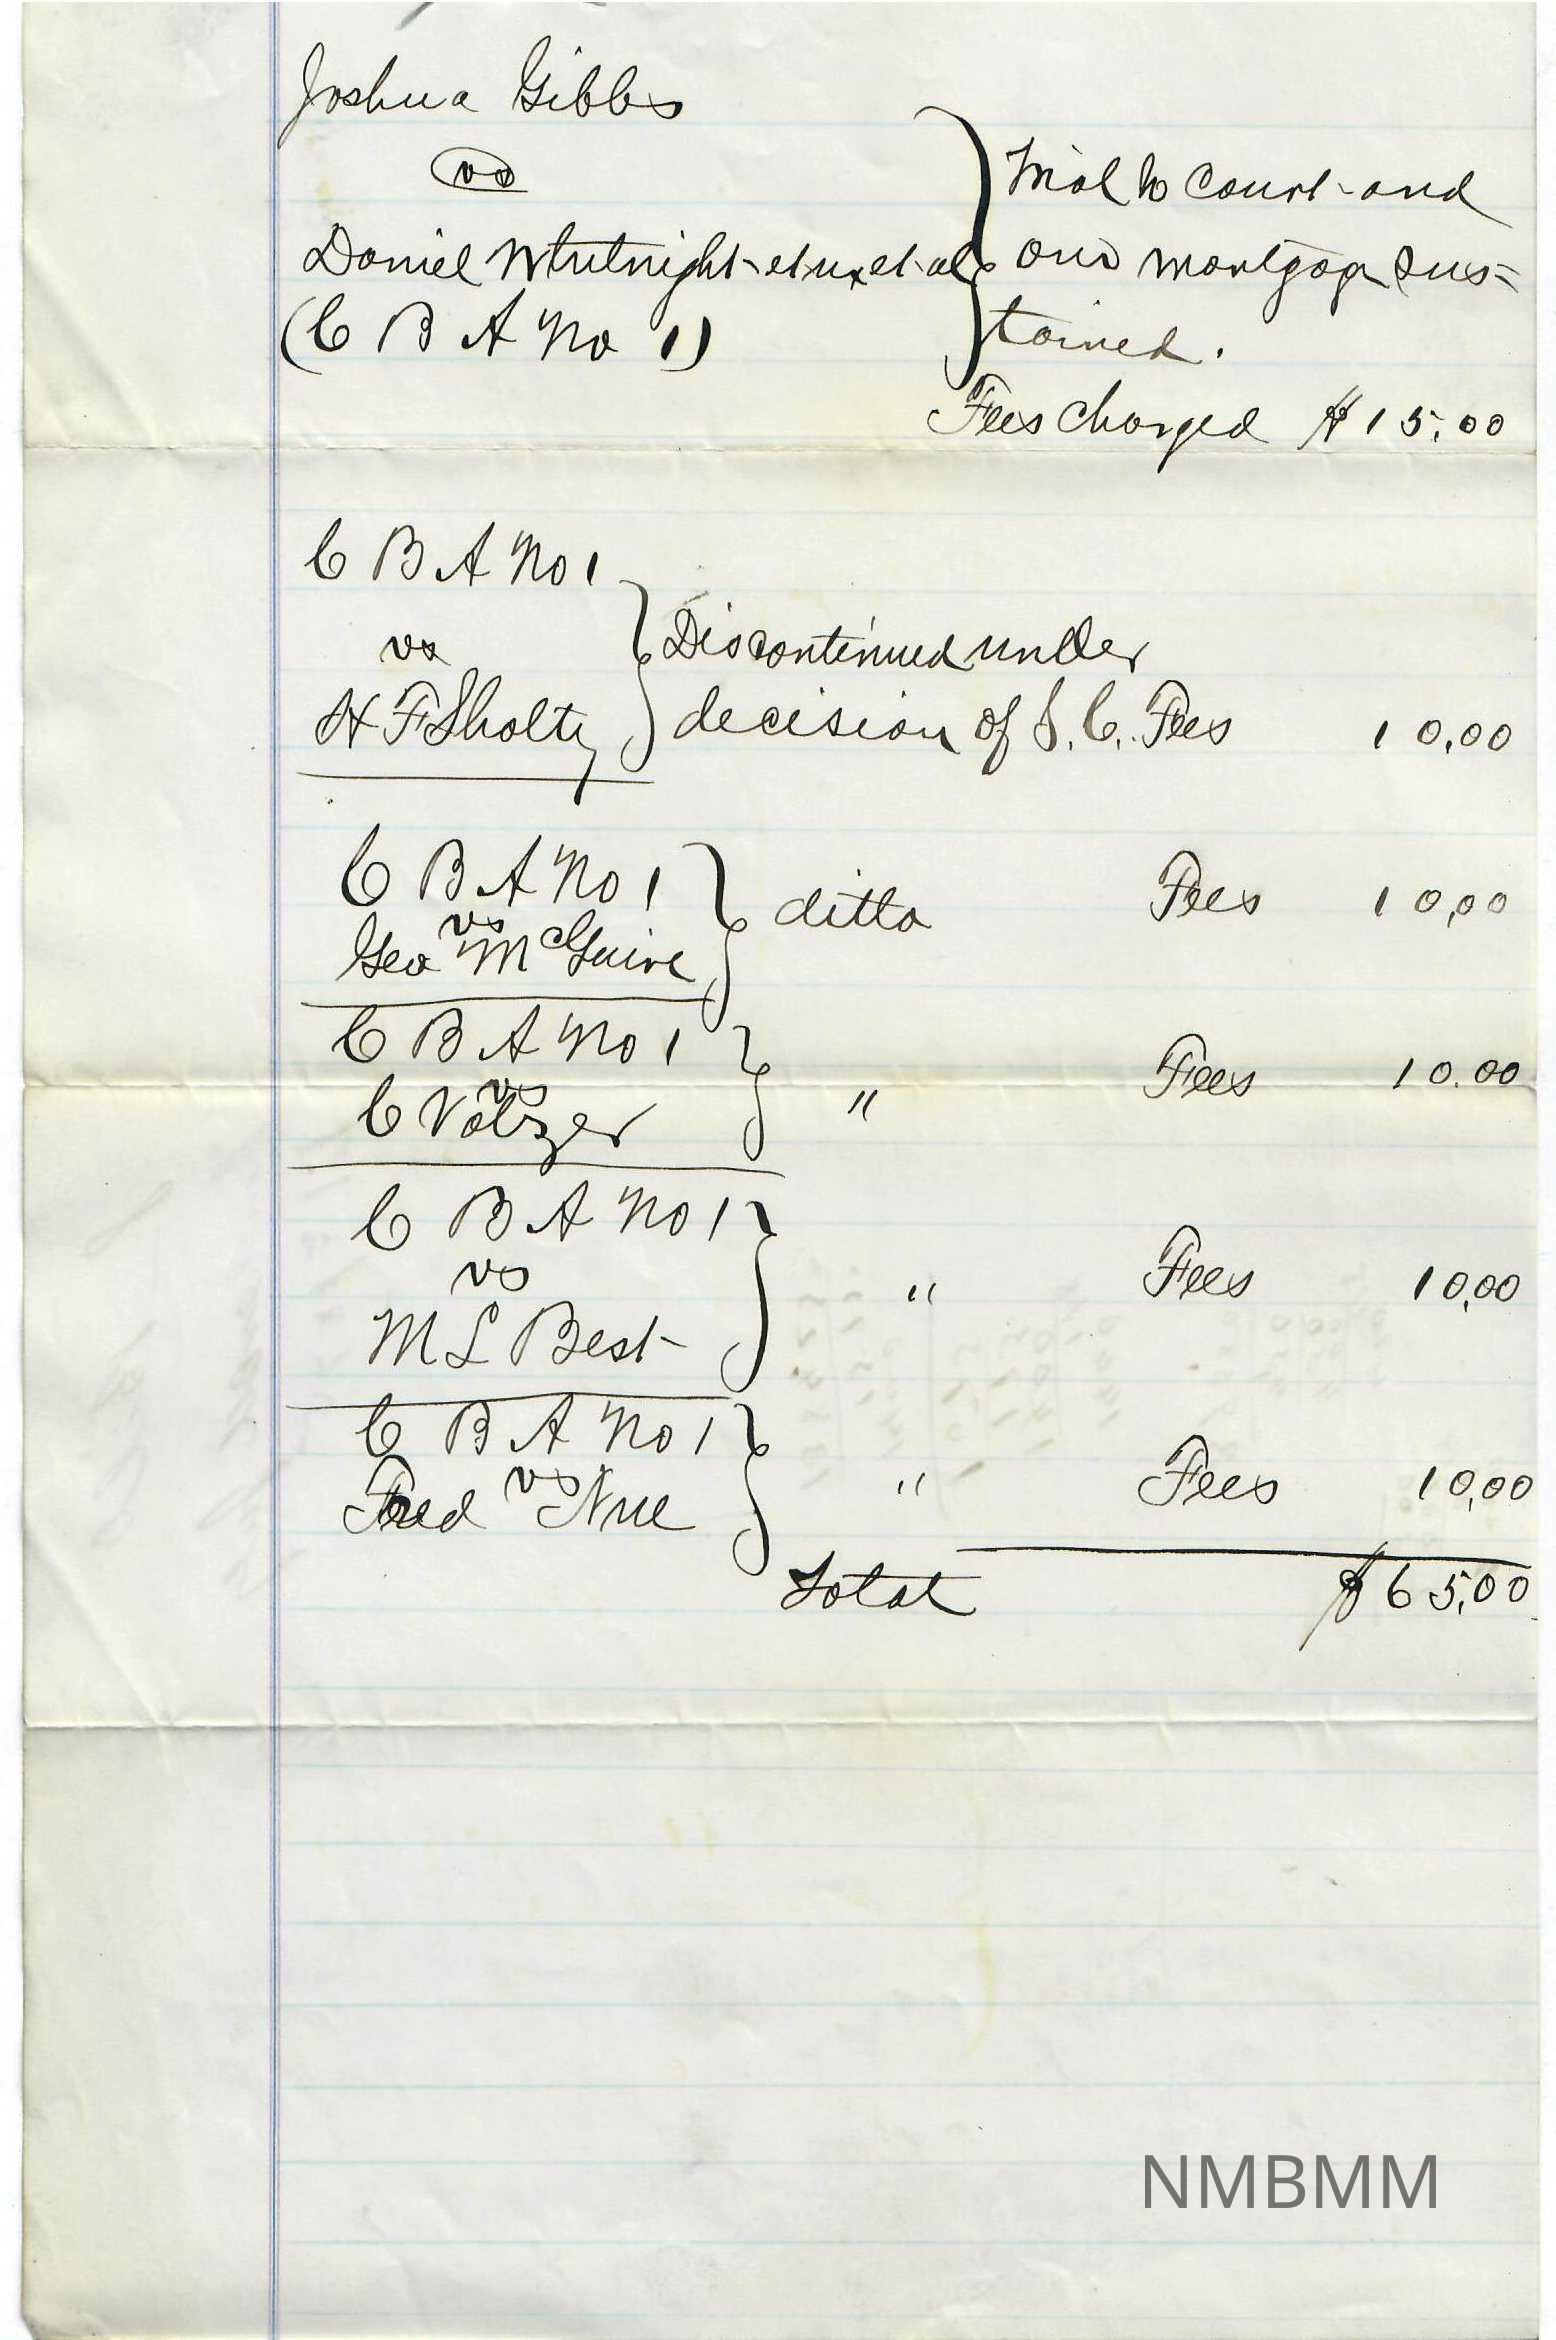 Joshua Gibbs
vs
Daniel Whitnight et ux et al
(C B A No 1)
Trial to Court and
our mortgage sus-
tained.
Fees charged $15.00
C B A No 1
vs
H F Sholty
Discontinued under
decision of S. C. Fees 10.00
C B A No 1
vs
Geo McGuire
ditto Fees 10,00
C B A No 1
vs
C Votzer
" Fees 10.00
C B A No 1
vs
M L Best
" Fees 10,00
C B A No 1
vs
Fred Nue
" Fees 10,00
Total $65,00
NMBMM